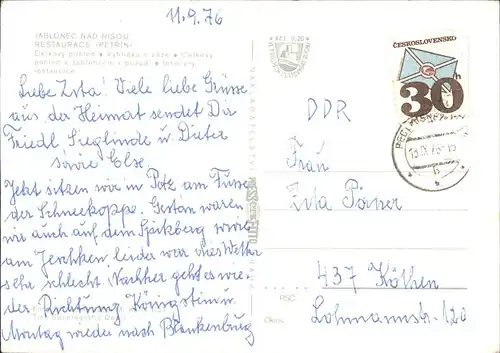 11.9.76
JABLONEC NAD NISOU
RESTAURACE «PETŘÍN»
Celkový pohled • Vyhlídková věž • Celkový
pohled s Jabloncem v pozadí • Interiéry
restaurace
Liebe Zsta! Viele liebe Grüsse
aus der Heimat sendet Dir
Friedl Sieglinde u Dieter
sowie Else.
Jetzt sitzen wir in Petz am Fusse
der Schneekoppe. Gestern waren
wir auch auf dem Spitzberg sowie
am Jeschken, leider war das Wetter
sehr schlecht. Nachher geht es wie-
der Richtung Königstein u.
Montag wieder nach Blankenburg
Kčs 0,20
ČESKOSLOVENSKO
30h
DDR
Frau
437 Köthen
Lohmannstr. 120